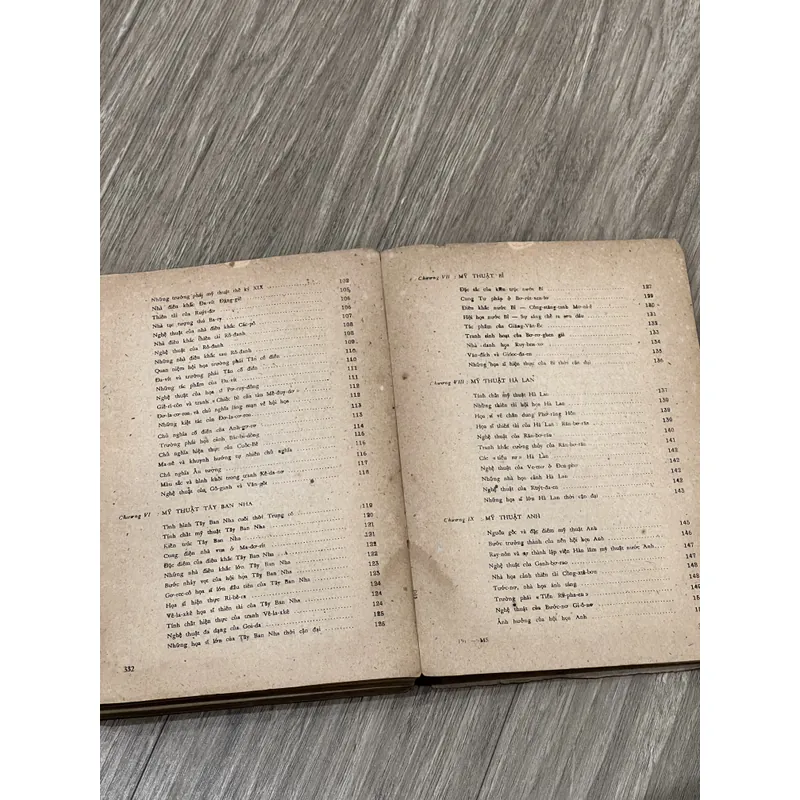 Những trường phái mỹ thuật thế kỉ XIX 102
Nhà điêu khắc Đa-vít Đăng-giê 105
Thiên tài của Ruýt-đơ 106
Nhà tạc tượng thú Ba-ry 106
Nghệ thuật của nhà điêu khắc Các-pô 107
Nhà điêu khắc thiên tài Rô-đanh 108
Nghệ thuật của Rô-đanh 108
Những nhà điêu khắc sau Rô-đanh 109
Quan niệm hội họa trường phái Tân cổ điển 110
Đa-vít và trường phái Tân cổ điển 110
Những tác phẩm của Đa-vít 111
Nghệ thuật của họa sĩ 112
Giê-ri-côn và tranh « Chiếc bè của tàu Mê-đuy-dơ » 112
Đơ-la-cơ-roa, và chủ nghĩa lãng mạn về hội họa 113
Những kiệt tác của Đơ-la-cơ-roa 113
Chủ nghĩa cổ điển của Anh-grơ 114
Trường phái họa cảnh Bác-bi-dông 114
Chủ nghĩa hiện thực của Cuốc-Bê 115
Ma-nê và khuynh hướng tự nhiên chủ nghĩa 116
Chủ nghĩa Ấn tượng 116
Màu sắc và hình khối trong tranh Xê-da-nơ 117
Nghệ thuật của Gô-ganh và Văn-gốc 118
Chương VI : MỸ THUẬT TÂY BAN NHA
Tình hình Tây Ban Nha cuối thời Trung cổ 119
Tính chất mỹ thuật Tây Ban Nha 120
Kiến trúc Tây Ban Nha 121
Cung điện nhà vua ở Ma-đơ-rít 121
Đặc điểm của điêu khắc Tây Ban Nha 122
Những nhà điêu khắc lớn Tây Ban Nha 122
Bước nhảy vọt của hội họa Tây Ban Nha 123
Gơ-rec-cô họa sĩ lớn đầu tiên của Tây Ban Nha 123
Họa sĩ hiện thực Ri-bê-ra 124
Vê-la-xkê họa sĩ thiên tài của Tây Ban Nha 124
Tính chất hiện thực của tranh Vê-la-xkê 124
Nghệ thuật đa dạng của Goi-da 125
Những họa sĩ lớn của Tây Ban Nha thời cận đại 126
332
Chương VII : MỸ THUẬT BỈ
Đặc sắc của kiến trúc nước Bỉ 127
Cung Tư pháp ở 129
Điêu khắc nước Bỉ — 130
Hội họa nước Bỉ — họ sống chế ra sơn dầu 131
Tác phẩm của Giăng-Văn-Êc 132
Tranh sinh hoạt của Bơ-rơ-ghen già 133
Nhà danh họa Ruy-ben-xơ 133
Văn-đích và Gióoc-đa-en 135
Những họa sĩ hiện thực của Bỉ thời cận đại 136
Chương VIII : MỸ THUẬT HÀ LAN
Tính chất mỹ thuật Hà Lan 137
Những thiên tài hội họa Hà Lan 138
Họa sĩ vẽ chân dung Phơ-răng Hôn 139
Họa sĩ thiên tài của Hà Lan : Răm-bơ-răn 139
Nghệ thuật của Răm-bơ-răn 140
Tranh khắc cường thủy của Răm-bơ-răn 141
Các « tiểu sư » Hà Lan 142
Nghệ thuật của Ve-mơ ở Đen-phơ 142
Những nhà họa cảnh Hà Lan 142
Nghệ thuật của Ruýt-đa-en 142
Những họa sĩ lớn Hà Lan thời cận đại 143
Chương IX : MỸ THUẬT ANH
Nguồn gốc và đặc điểm mỹ thuật Anh 145
Bước trưởng thành của nền hội họa Anh 145
Ray-nôn và sự thành lập viện Hàn lâm mỹ thuật nước Anh 146
Nghệ thuật của Ganh-bơ-rao 146
Nhà họa cảnh thiên tài Công-xtê-bơn
Tước-nơ, nhà họa ánh sáng
Trường phái « Tiền Ra-pha-en »
Nghệ thuật của Bước-nơ Giô-nơ
Ảnh hưởng của hội họa Anh